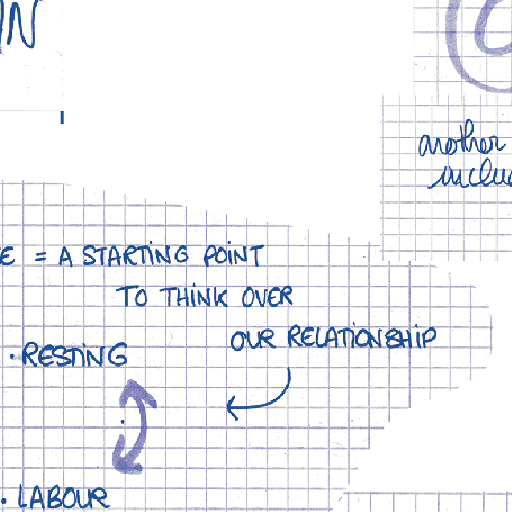 IN
another
inclu
E = A STARTING POINT
TO THINK OVER
OUR RELATIONSHIP
• RESTING
• LABOUR